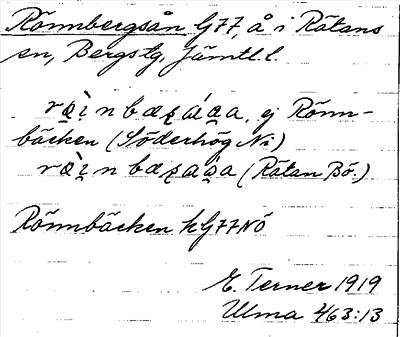 Rönnbergsån G77, å i Rätans
sn, Bergs tg, Jämtl. l.
, ej Rönn-
bäcken (Söderhög Ni)
(Rätan Bö.)
Rönnbäcken k G77NÖ
E. Terner 1919
Ulma 463:13